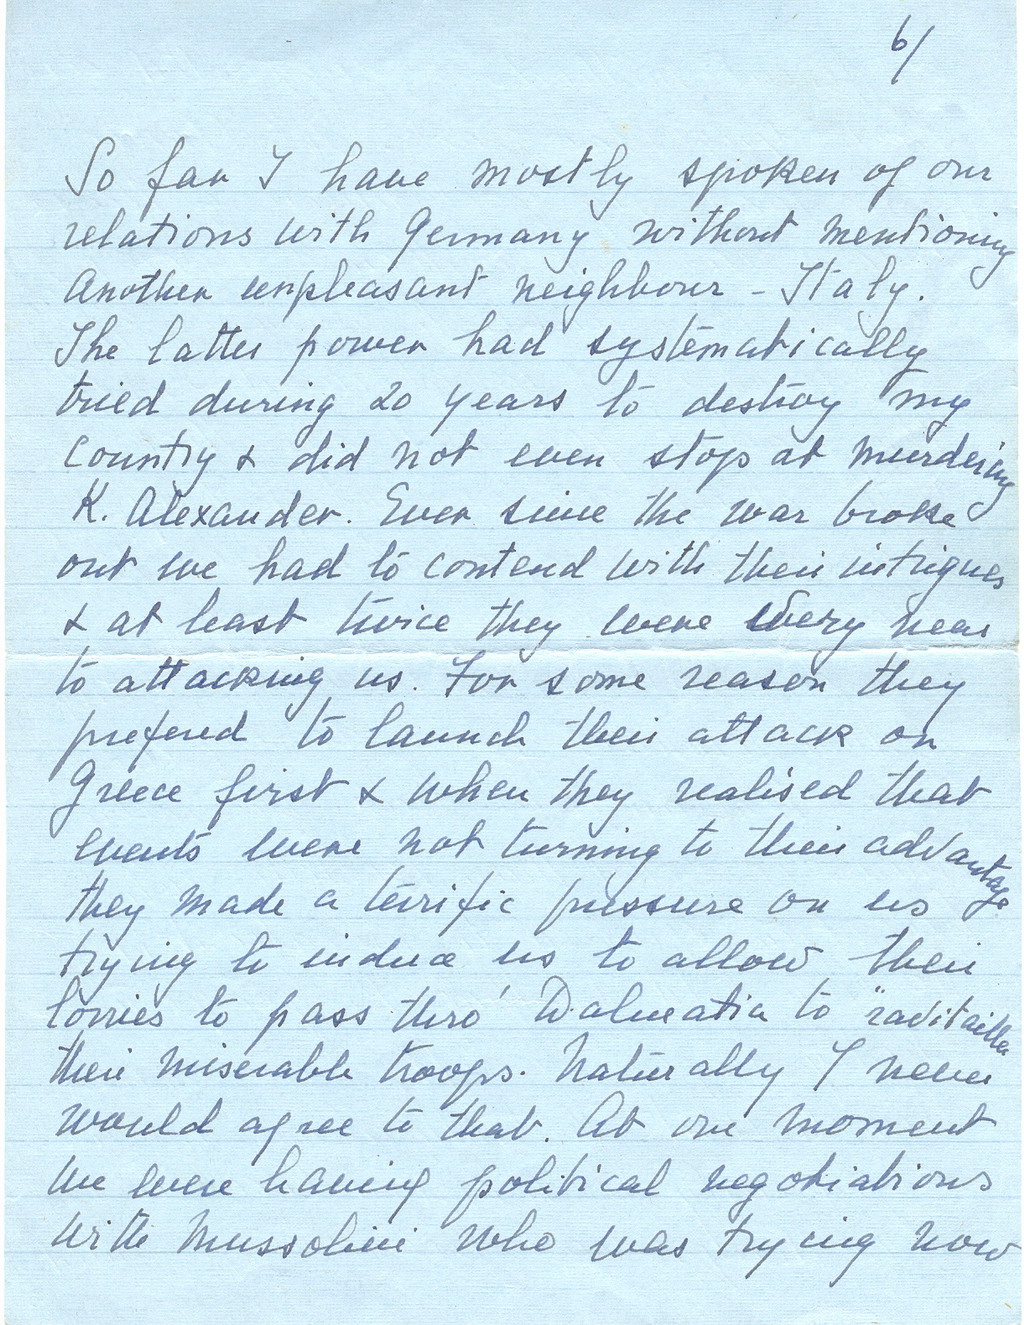 6/
So far I have mostly spoken of our
relations with Germany without mentioning
another unpleasant neighbour – Italy.
The latter power had systematically
tried during 20 years to destroy my
country & did not even stop at murdering
K. Alexander. Ever since the war broke
out we had to contend with their intrigues
& at least twice they were very near
to attacking us. For some reason they
prefered to launch their attack on
Greece first & when they realised that
events were not turning to their advantage
they made a terrific pressure on us
trying to induce us to allow their
lorries to pass thro' Dalmatia to "ravitailler
their miserable troops. Naturally I never
would agree to that. At one moment
we were having political negotiations
with Mussolini who was trying now